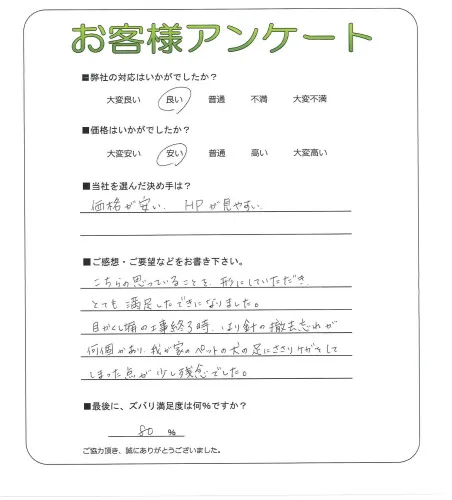 お客様アンケート
■弊社の対応はいかがでしたか？
大変良い 良い 普通 不満 大変不満
■価格はいかがでしたか？
大変安い 安い 普通 高い 大変高い
■当社を選んだ決め手は？
価格が安い、HPが見やすい
■ご感想・ご要望などをお書き下さい。
こちらの思っていることを、形にしていただき、
とても満足したできになりました。
目かくし塀の工事終了時、はり針の撤去忘れが
何個かあり、我が家のペットの犬の足にささりケガをして
しまった点が少し残念でした。
■最後に、ズバリ満足度は何%ですか？
80 %
ご協力頂き、誠にありがとうございました。